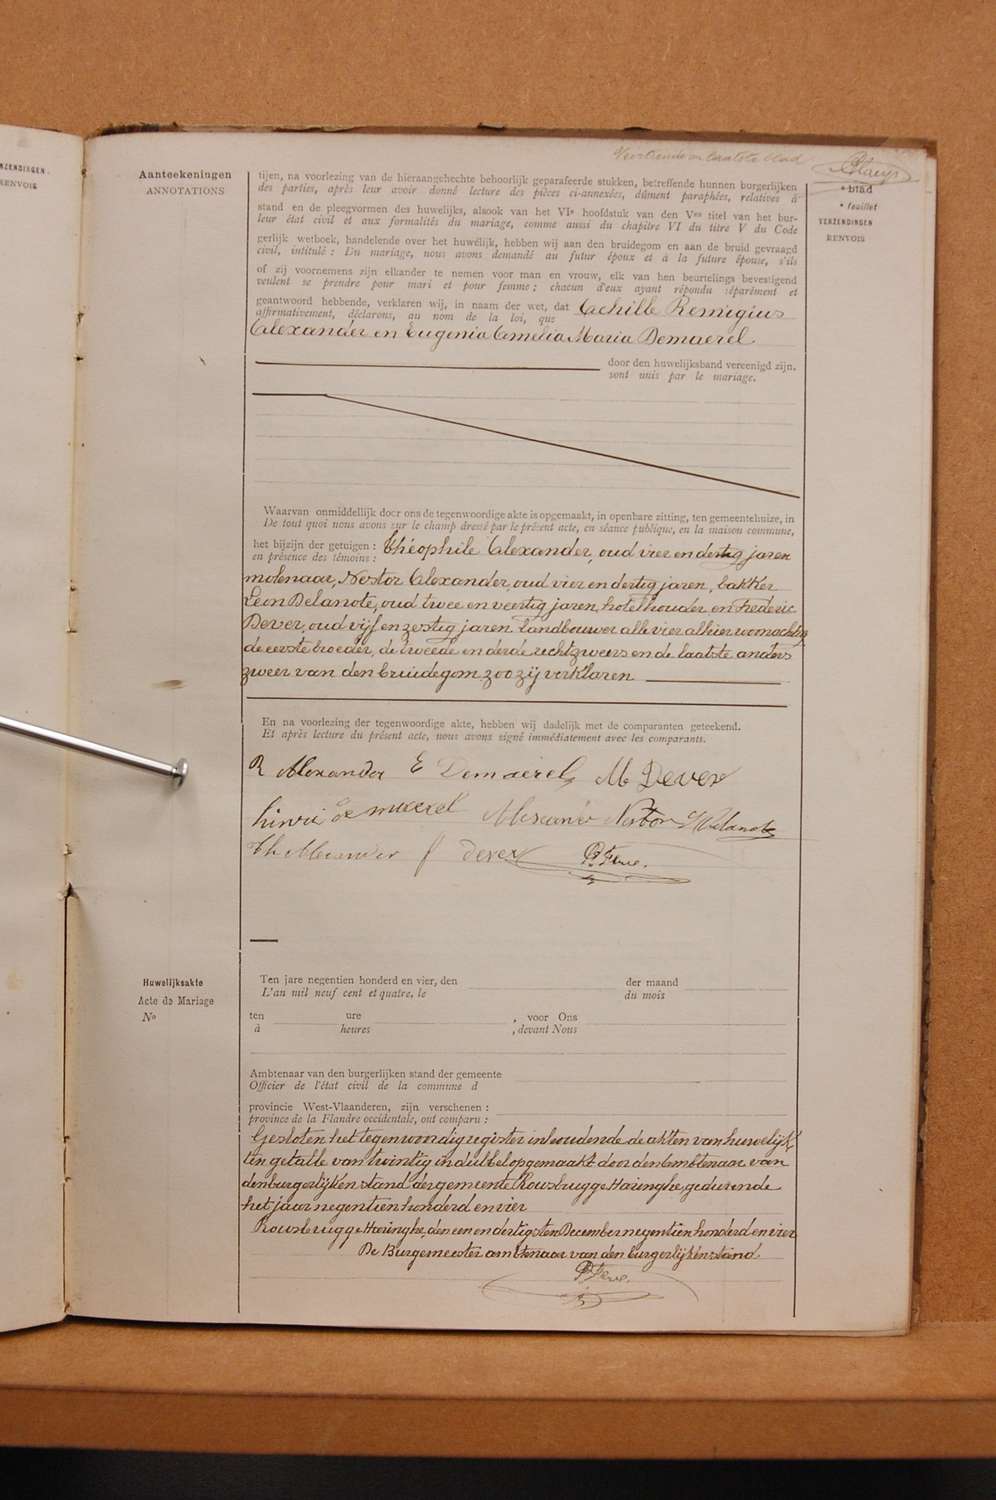 NZENDINGEN.
RENVOIS
Aanteekeningen
ANNOTATIONS
en laatste blad
blad
feuillet
VERZENDINGEN
RENVOIS
tijen, na voorlezing van de hieraangehechte behoorlijk geparafeerde stukken, betreffende hunnen burgerlijken
des parties, après leur avoir donné lecture des pièces ci-annexées, dûment paraphées, relatives à
stand en de pleegvormen des huwelijks, alsook van het VIe hoofdstuk van den Ven titel van het bur-
leur état civil et aux formalités du mariage, comme aussi du chapitre VI du titre V du Code
gerlijk wetboek, handelende over het huwelijk, hebben wij aan den bruidegom en aan de bruid gevraagd
civil, intitulé : Du mariage, nous avons demandé au futur époux et à la future épouse, s'ils
of zij voornemens zijn elkander te nemen voor man en vrouw, elk van hen beurtelings bevestigend
veulent se prendre pour mari et pour femme ; chacun d'eux ayant répondu séparément et
geantwoord hebbende, verklaren wij, in naam der wet, dat Achille Remigius
affirmativement, déclarons, au nom de la loi, que
Alexander en Eugenia Amelia Maria Demaerel
door den huwelijksband vereenigd zijn.
sont unis par le mariage.
Waarvan onmiddellijk door ons de tegenwoordige akte is opgemaakt, in openbare zitting, ten gemeentehuize, in
De tout quoi nous avons sur le champ dressé par le présent acte, en séance publique, en la maison commune,
het bijzijn der getuigen : Théophile Alexander, oud vier en dertig jaren
en présence des témoins :
molenaar, Nestor Alexander, oud vier en dertig jaren, bakker
Leon Delanote, oud twee en veertig jaren, hotelhouder en Frederic
Dever, oud vijf en zestig jaren landbouwer alle vier alhier woonachtig
de eerste broeder, de tweede en derde rechtzweers en de laatste anders
zweer van den bruidegom zoo zij verklaren
En na voorlezing der tegenwoordige akte, hebben wij dadelijk met de comparanten geteekend.
Et après lecture du présent acte, nous avons signé immédiatement avec les comparants.
R Alexander E Demaerel M Dever
Alexander Nestor Delanote
Th Alexander f dever
Huwelijksakte
Acte de Mariage
No
Ten jare negentien honderd en vier, den der maand
L'an mil neuf cent et quatre, le du mois
ten ure , voor Ons
à heures , devant Nous
Ambtenaar van den burgerlijken stand der gemeente
Officier de l'état civil de la commune d
provincie West-Vlaanderen, zijn verschenen :
province de la Flandre occidentale, ont comparu :
Gesloten het tegenwoordig register inhoudende de akten van huwelijk
ten getalle van twintig in dubbel opgemaakt door den Ambtenaar van
den burgerlijken stand der gemeente Rousbrugge Haringhe, gedurende
het jaar negentien honderd en vier
Rousbrugge Haringhe, den een en dertigsten December negentien honderd en vier
De Burgemeester ambtenaar van den burgerlijken stand